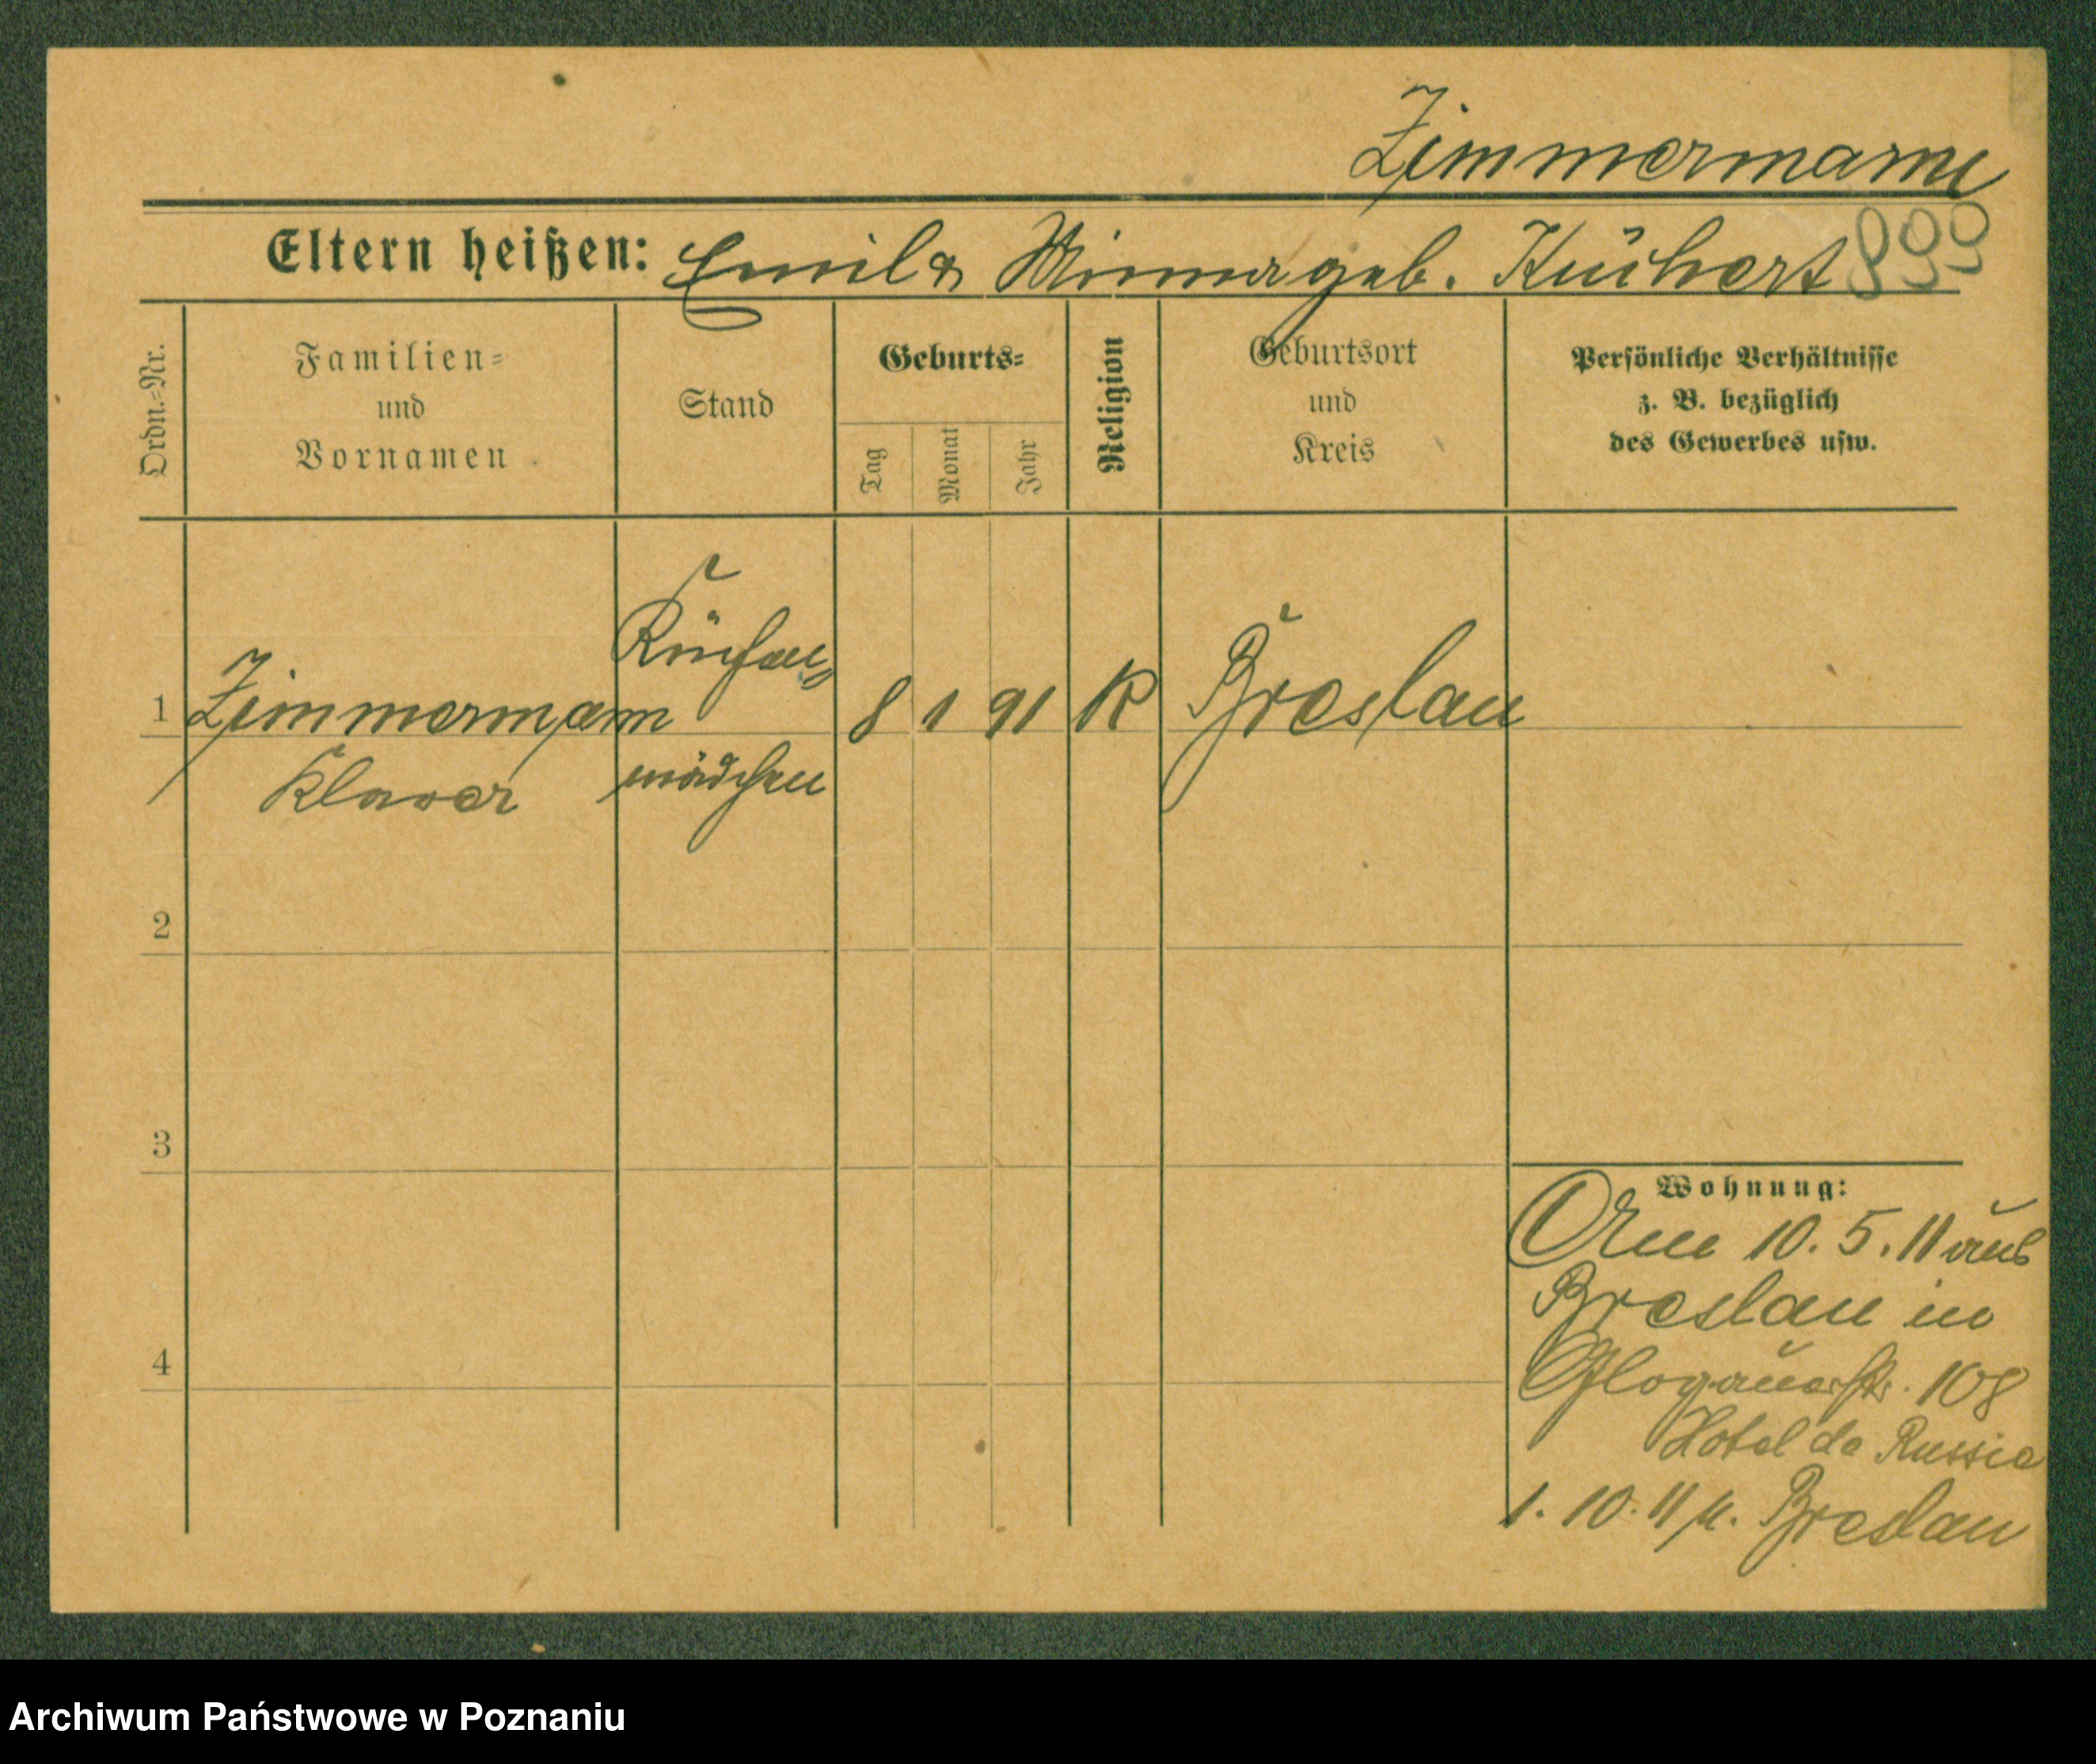 Zimmermann
Eltern heißen: Emil & Minna geb. Kühert 899
Ordn.-Nr.
Familien-
und
Vornamen
Stand
Geburts-
Tag
Monat
Jahr
Religion
Geburtsort
und
Kreis
Persönliche Verhältnisse
z. B. bezüglich
des Gewerbes usw.
Küchen-
1 Zimmermann 8 1 91 K Breslau
mädchen
2
3
4
Wohnung:
Am 10. 5. 11 aus
Breslau in
Glogauerstr. 108
Hotel de Russie
1. 10. 11 n. Breslau
Archiwum Państwowe w Poznaniu